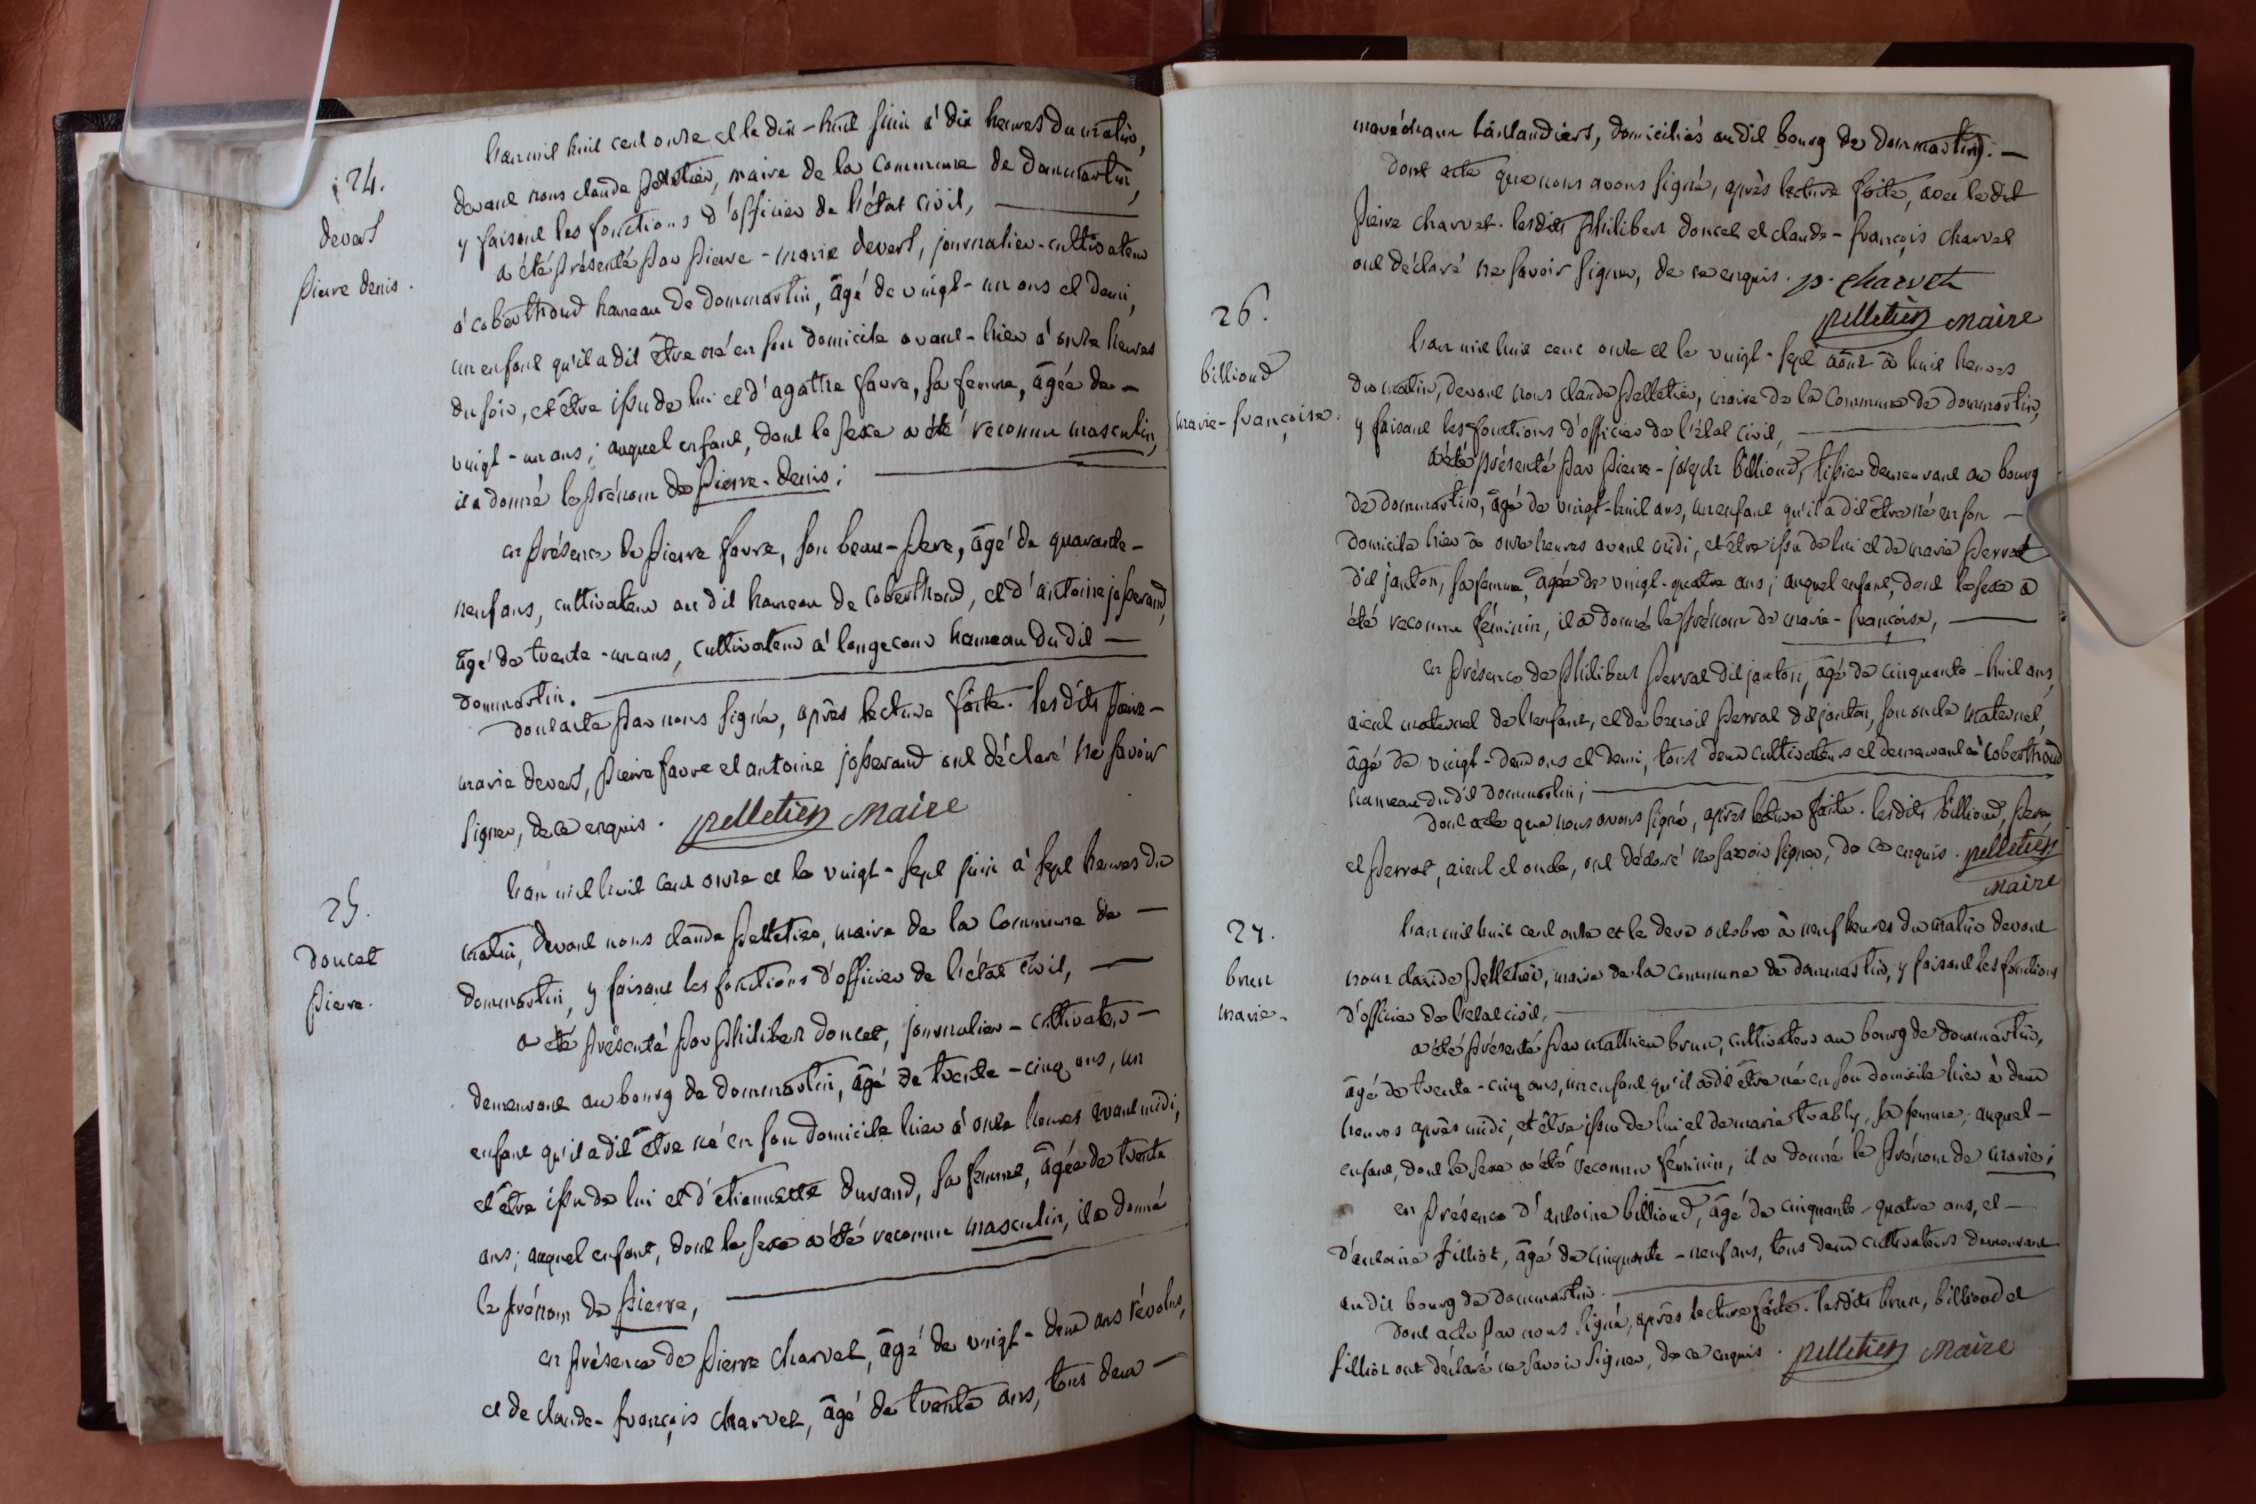 24.
devert
pierre denis.
L'an mil huit cent onze et le dix-huit juin à dix heures du matin,
devant nous claude pelletier, maire de la commune de dommartin,
y faisant les fonctions d'officier de l'état civil,
a été présenté par pierre-marie devert, journalier-cultivateur
à coberthoud hameau de dommartin, âgé de vingt-un ans et demi,
un enfant qu'il a dit être né en son domicile avant-hier à onze heures
du soir, et être issu de lui et d'agathe favre, sa femme, âgée de
vingt-un ans; auquel enfant, dont le sexe a été reconnu masculin,
il a donné le prénom de pierre-denis;
en présence de pierre favre, son beau-pere, âgé de quarante-
neuf ans, cultivateur au dit hameau de coberthoud, et d'antoine josserand,
âgé de trente-un ans, cultivateur à longecour hameau du dit
dommartin.
dont acte par nous signé, après lecture faite. lesdits pierre-
marie devert, pierre favre et antoine josserand ont déclaré ne savoir
signer, de ce enquis. pelletier maire
25.
doucet
pierre.
L'an mil huit cent onze et le vingt-sept juin à sept heures du
matin, devant nous claude pelletier, maire de la commune de
dommartin, y faisant les fonctions d'officier de l'état civil,
a été présenté par philibert doucet, journalier-cultivateur
demeurant au bourg de dommartin, âgé de trente-cinq ans, un
enfant qu'il a dit être né en son domicile hier à onze heures avant midi,
et être issu de lui et d'etiennette durand, sa femme, âgée de trente
ans; auquel enfant, dont le sexe a été reconnu masculin, il a donné
le prénom de pierre,
en présence de pierre charvet, âgé de vingt-deux ans révolus,
et de claude-françois charvet, âgé de trente ans, tous deux
maréchaux taillandiers, domiciliés au dit bourg de dommartin.
dont acte que nous avons signé, après lecture faite, avec le dit
pierre charvet. lesdits philibert doucet et claude-françois charvet
ont déclaré ne savoir signer, de ce enquis. p. charvet
pelletier maire
26.
billioud
marie-françoise.
L'an mil huit cent onze et le vingt-sept août à huit heures
du matin, devant nous claude pelletier, maire de la commune de dommartin,
y faisant les fonctions d'officier de l'état civil,
a été présenté par pierre-joseph billioud, tissier demeurant au bourg
de dommartin, âgé de vingt-huit ans, un enfant qu'il a dit être né en son
domicile hier à onze heures avant midi, et être issu de lui et de marie perrat
dit janton, sa femme, âgée de vingt-quatre ans; auquel enfant, dont le sexe a
été reconnu féminin, il a donné le prénom de marie-françoise,
en présence de philibert perrat dit janton, âgé de cinquante-huit ans,
aieul maternel de l'enfant, et de benoit perrat dit janton, son oncle maternel,
âgé de vingt-deux ans et demi, tous deux cultivateurs et demeurant à coberthoud
hameau du dit dommartin;
dont acte que nous avons signé, après lecture faite. lesdits billioud, perrat
et perrat, aieul et oncle, ont déclaré ne savoir signer, de ce enquis. pelletier
maire
27.
brun
marie.
L'an mil huit cent onze et le deux octobre à neuf heures du matin devant
nous claude pelletier, maire de la commune de dommartin, y faisant les fonctions
d'officier de l'état civil,
a été présenté par mathieu brun, cultivateur au bourg de dommartin,
âgé de trente-cinq ans, un enfant qu'il a dit être né en son domicile hier à deux
heures après midi, et être issu de lui et de marie trably, sa femme; auquel
enfant, dont le sexe a été reconnu féminin, il a donné le prénom de marie;
en présence d'antoine billioud, âgé de cinquante-quatre ans, et
d'antoine filliot, âgé de cinquante-neuf ans, tous deux cultivateurs demeurant
au dit bourg de dommartin.
dont acte par nous signé, après lecture faite. lesdits brun, billioud et
filliot ont déclaré ne savoir signer, de ce enquis. pelletier maire